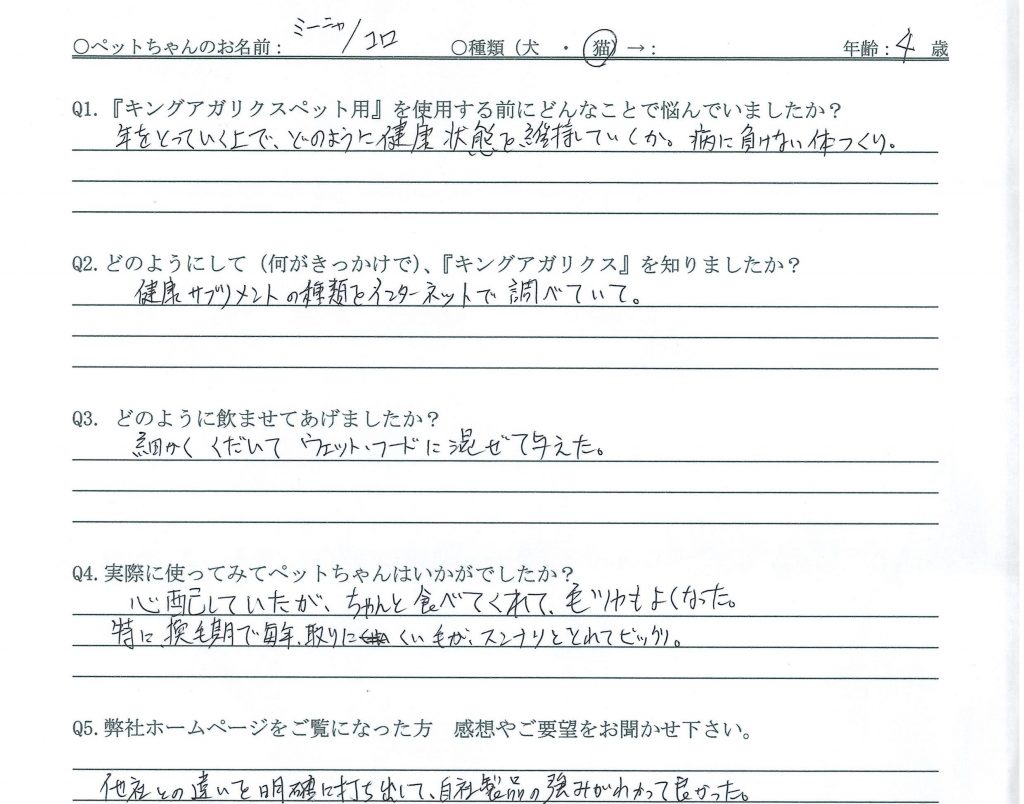 ○ペットちゃんのお名前： ミーニャ/コロ ○種類（犬 ・ 猫）→： 年齢：4 歳
Q1.『キングアガリクスペット用』を使用する前にどんなことで悩んでいましたか？
年をとっていく上で、どのように健康状態を維持していくか。病に負けない体つくり。
Q2.どのようにして（何がきっかけで）、『キングアガリクス』を知りましたか？
健康サプリメントの種類をインターネットで調べていて。
Q3. どのように飲ませてあげましたか？
細かくくだいてウェット・フードに混ぜて与えた。
Q4.実際に使ってみてペットちゃんはいかがでしたか？
心配していたが、ちゃんと食べてくれて、毛ツヤもよくなった。
特に、換毛期で毎年、取りにくい毛が、スンナリととれてビックリ。
Q5.弊社ホームページをご覧になった方 感想やご要望をお聞かせ下さい。
他社との違いを明確に打ち出して、自社製品の強みがわかって良かった。